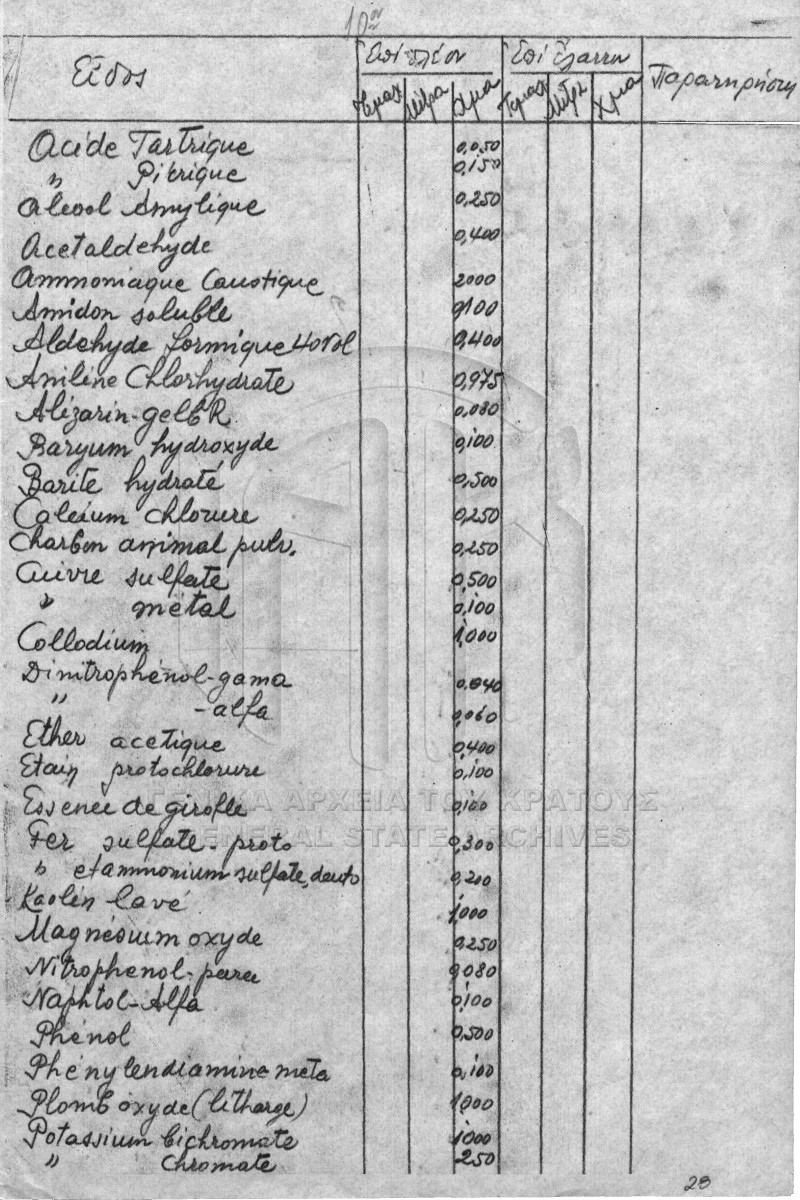 10ον
Είδος Επί πλέον Επί έλαττον Παρατηρήσεις
Τεμαχ Μέτρα Χγμα Τεμαχ Μέτρ Χγμα
Acide Tartrique 0,050
" Picrique 0,150
Alcool Amylique 0,250
Acetaldehyde 0,400
Ammoniaque Caustique 2000
Amidon soluble 0,100
Aldehyde formique 40 vol 0,400
Aniline Chlorhydrate 0,975
Alizarin-gelb R. 0,080
Baryum hydroxyde 0,100
Barite hydraté 0,500
Calcium chlorure 0,250
Charbon animal pulv. 0,250
Cuivre sulfate 0,500
" métal 0,100
Collodium 1,000
Dinitrophénol-gama 0,040
" -alfa 0,060
Ether acetique 0,400
Etain protochlorure 0,100
Essence de girofle 0,100
Fer sulfate-proto 0,300
" et ammonium sulfate, deuto 0,200
Kaolin lavé 1,000
Magnésium oxyde 0,250
Nitrophenol-para 0,080
Naphtol-Alfa 0,100
Phénol 0,500
Phénylendiamine meta 0,100
Plomb oxyde (litharge) 1000
Potassium bichromate 1000
" chromate 250
28
ΓΕΝΙΚΑ ΑΡΧΕΙΑ ΤΟΥ ΚΡΑΤΟΥΣ
GENERAL STATE ARCHIVES